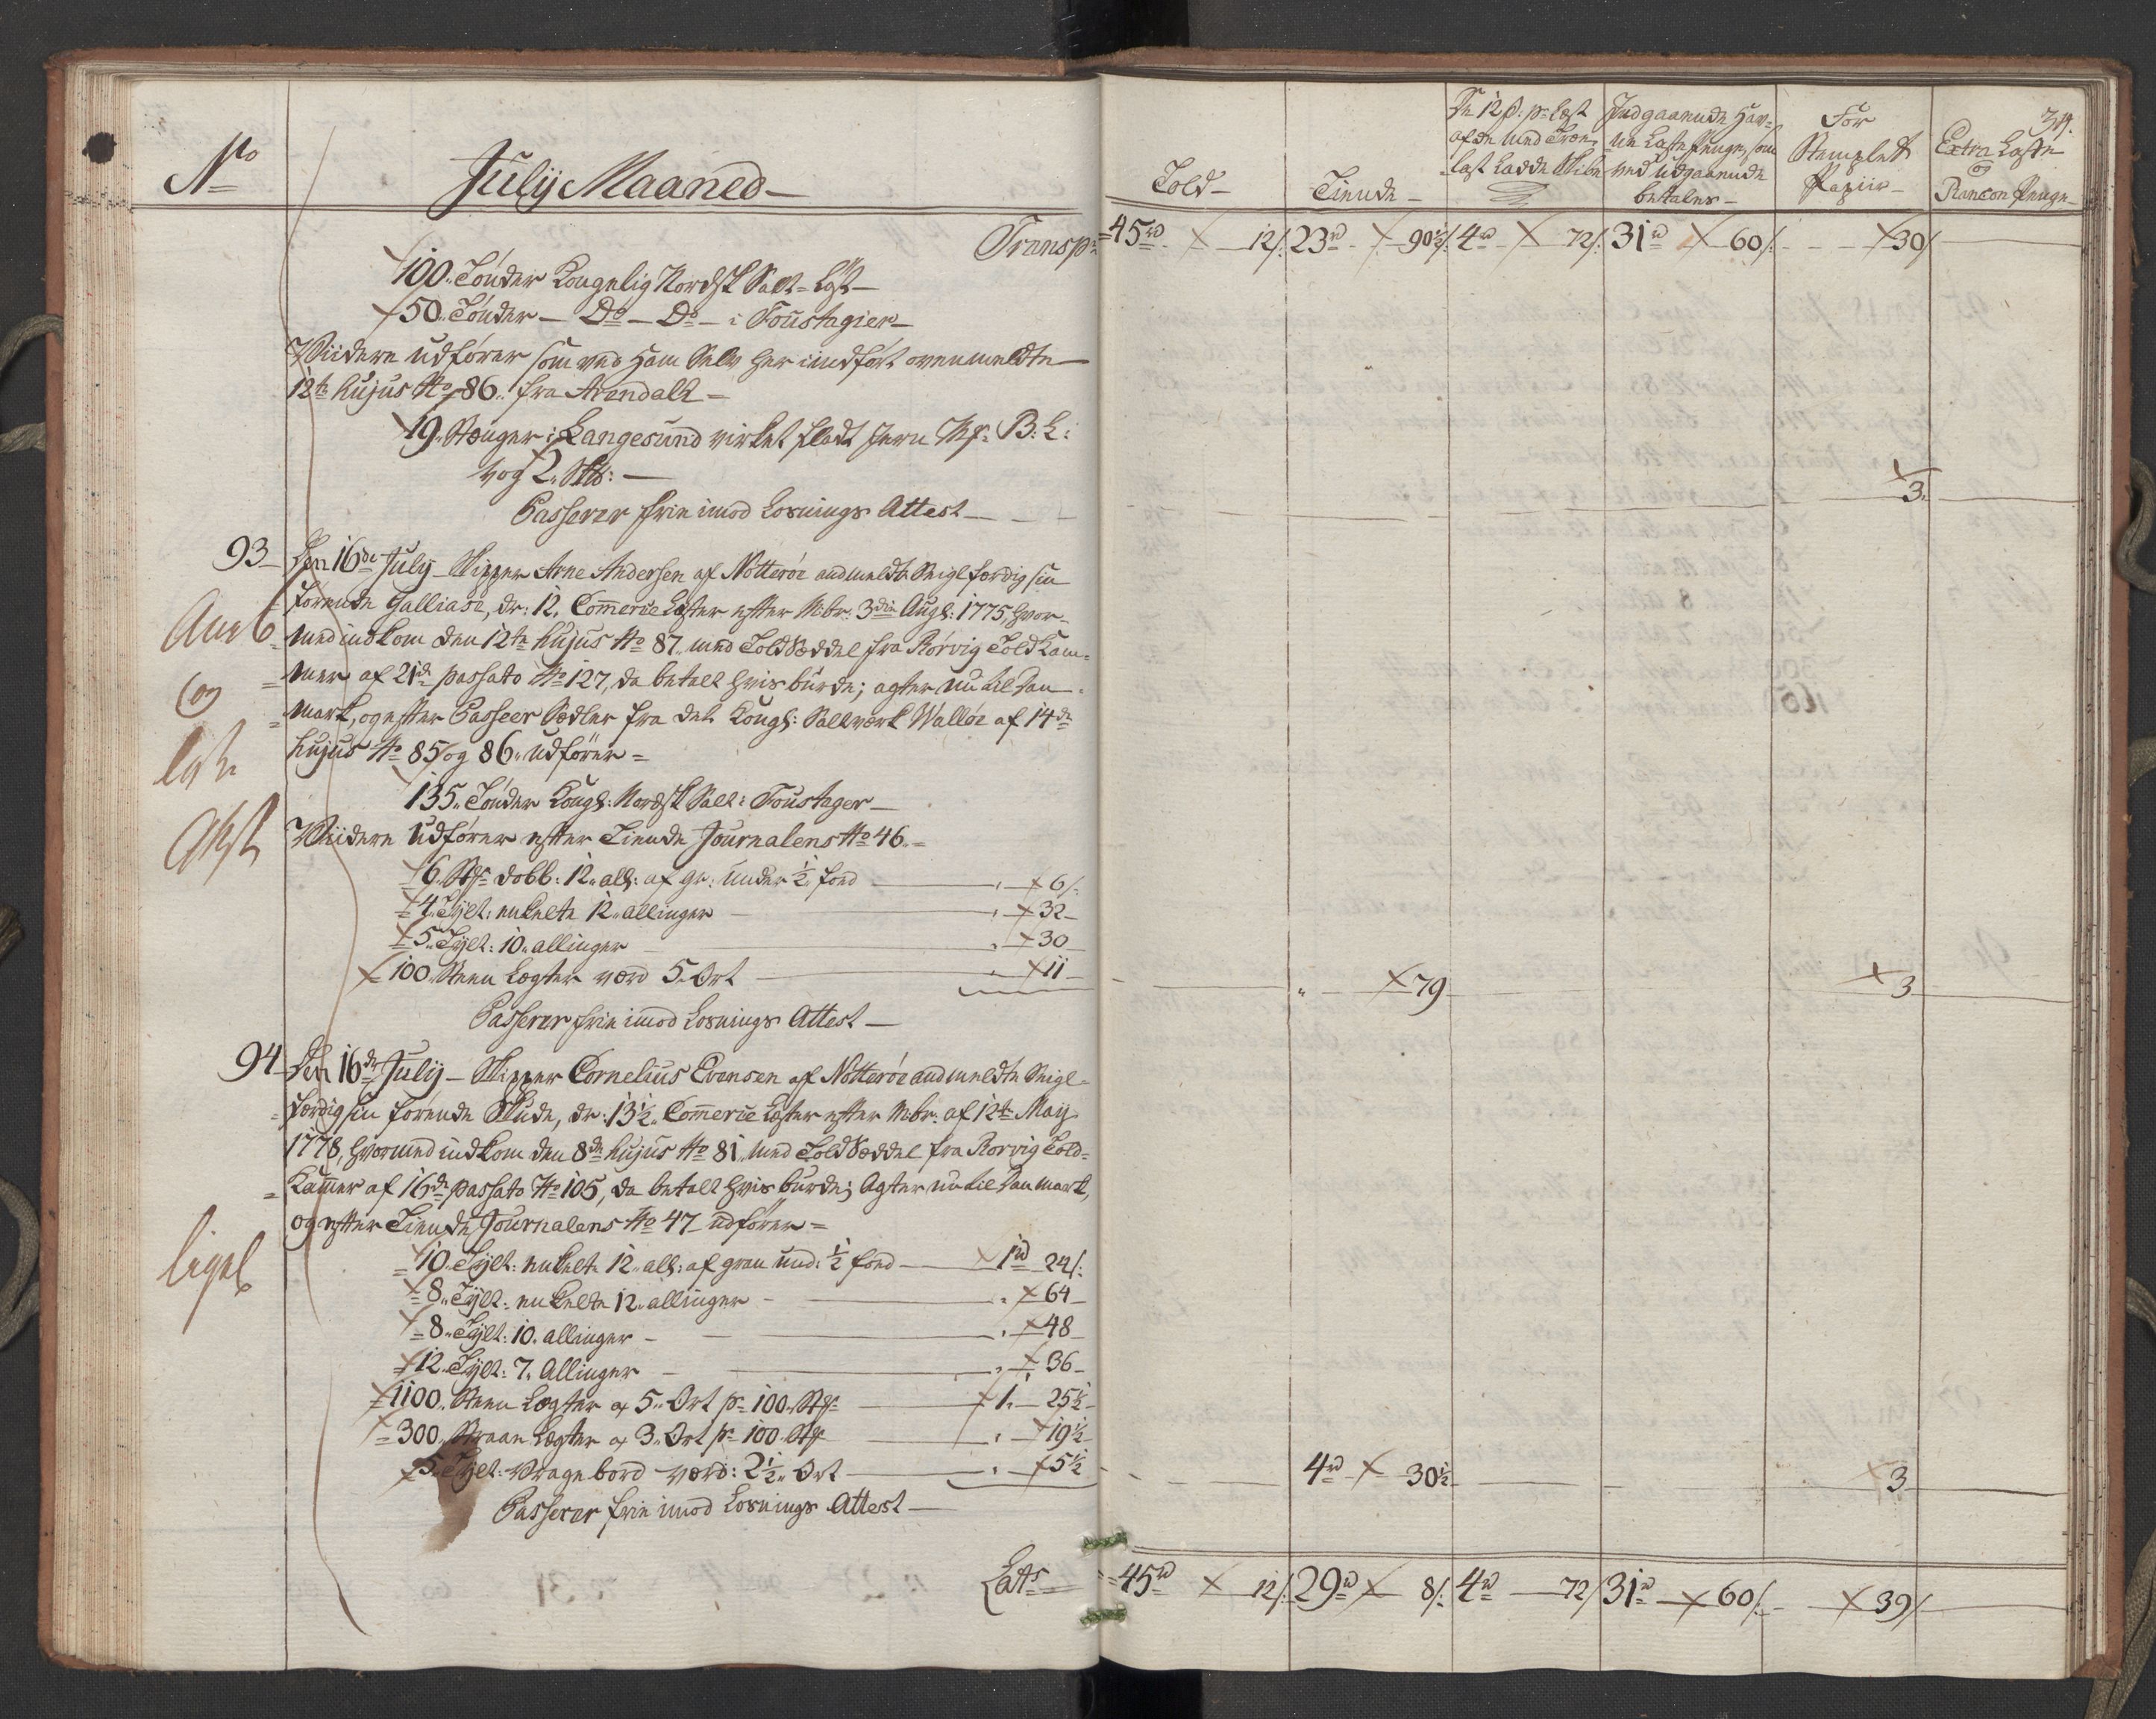 No
July Maaned
Transp:
100. Tönder Kongelig Nordsk Salt - Løst
50. Tönder - Do - Do - i Foustagier
Wiidere udfører som ved ham Selv her indført ovenmeldte
12te hujus No 86. fra Arendall =
19. Stænger: Langesund virket fladt Jern Mk: B: L:
vog 2. Skb:
Passerer frie imod Losnings Attest
93
Den 16de July - Skipper Arne Andersen af Nötteröe andmeldte Seiglfærdig sin
förende Galliase, dr: 12. Commerce Læster efter M:br: 3die Augl: 1775, hvor-
med indkom den 12te hujus No 87. med Toldseddel fra Rörvig Told Kam-
mer af 21de passato No 127, da betalt hvis burde; agter nu til Dan-
mark, og efter Passeer Sedler fra det Kongl: Saltværk Walløe af 14de
hujus No 85 og 86. udförer =
og
135. Tönder Kongl: Nordsk Salt: Foustager
Wiidere udförer efter Tiende Journalens No 46. =
6. Sts: dobb: 12. all: af gr: under ½ fod - 6/:
4. Tylt: enkelte 12. allinger - 32
5. Tylt: 10. allinger - 30
100. Steen Lægter værd 5. Ort - 11
Passerer frie imod Losnings Attest
94
Den 16de July - Skipper Cornelius Evensen af Nötteröe andmeldte Seigl-
færdig sin förende Skude, dr: 13½. Commerce Læster efter M:br: af 12te May
1778, hvormed indkom den 8de hujus No 81. med Toldseddel fra Rorvig Told-
Kammer af 16de passato No 105, da betalt hvis burde; Agter nu til Danmark,
og efter Tiende Journalens No 47 udförer =
10. Tylt: enkelte 12. all: af gran und: ½ fod - 1rd 24/:
8. Tylt: enkelte 12. allinger - 64
8. Tylt: 10. allinger - 48
12. Tylt: 7. Allinger - 36
1100. Steen Lægter a 5. Ort pr 100. Sts: - 1. 25½
300. Straae Lægter a 3. Ort pr 100 Sts - 19½
5. Tylt: Vragebord værd: 2½. Ort - 5½
Passerer frie imod Losnings Attest
Lats
Told
Tiende
De 12 s: pr Læst
af de med Træe-
last Ladde Skibe
Indgaaende Hav-
ne Laste Penge, som
ved udgaaende
betales
For
Stemplet
Papiir
Extra Laste
og
Rancon Penge
45rd 12/: 23rd 90½/: 4rd 72/: 31rd 60/: 30/
3
79 3
4rd 30½ 3
45rd 12/: 29rd 8/: 4rd 72/ 31rd 60/: 39/